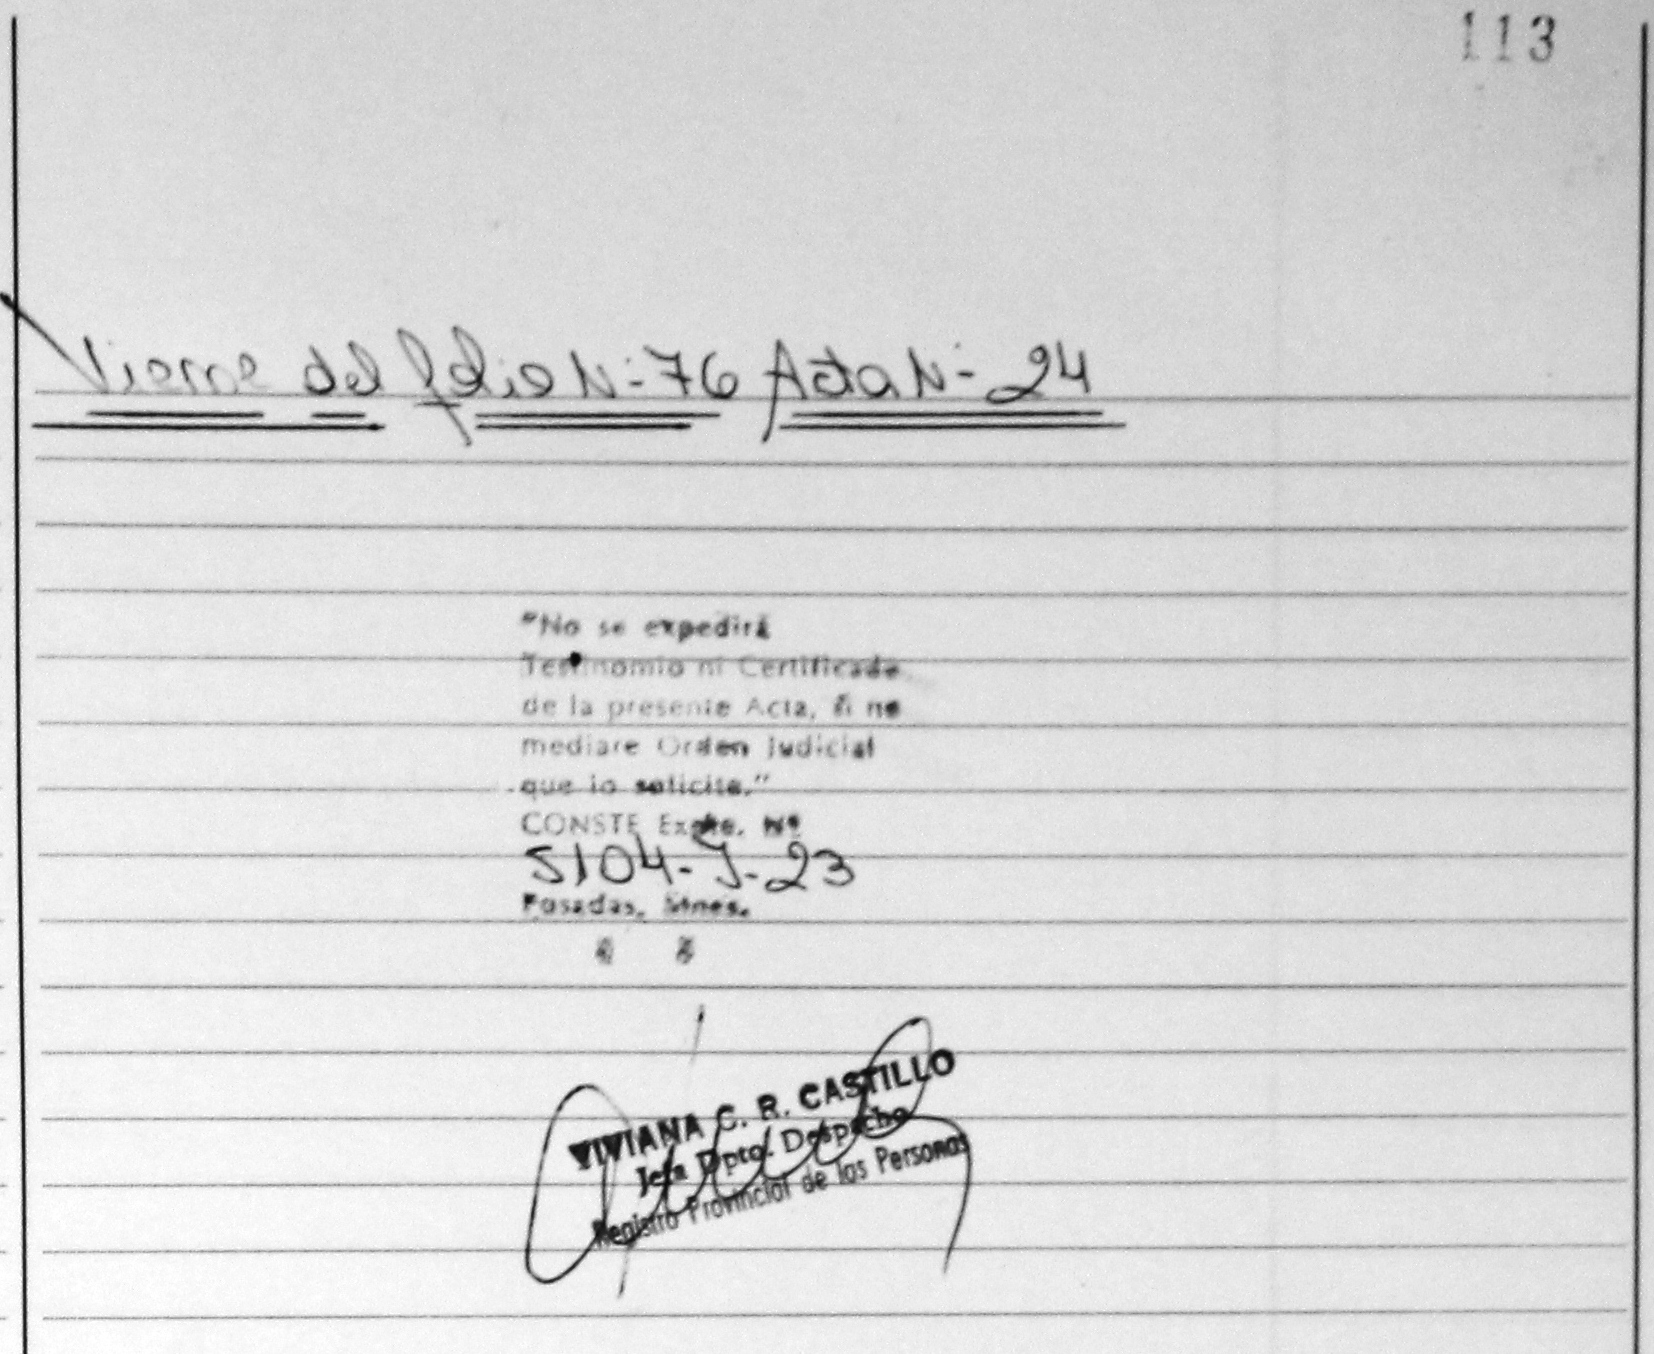 113
Viene del folio N-76 Acta N- 24
"No se expedirá
Testimonio ni Certificado
de la presente Acta, si no
mediare Orden Judicial
que lo solicite."
CONSTE Expte. Nº
5104-J-23
Posadas, Mnes.
VIVIANA C. R. CASTILLO
Jefa Dpto. Despacho
Registro Provincial de las Personas